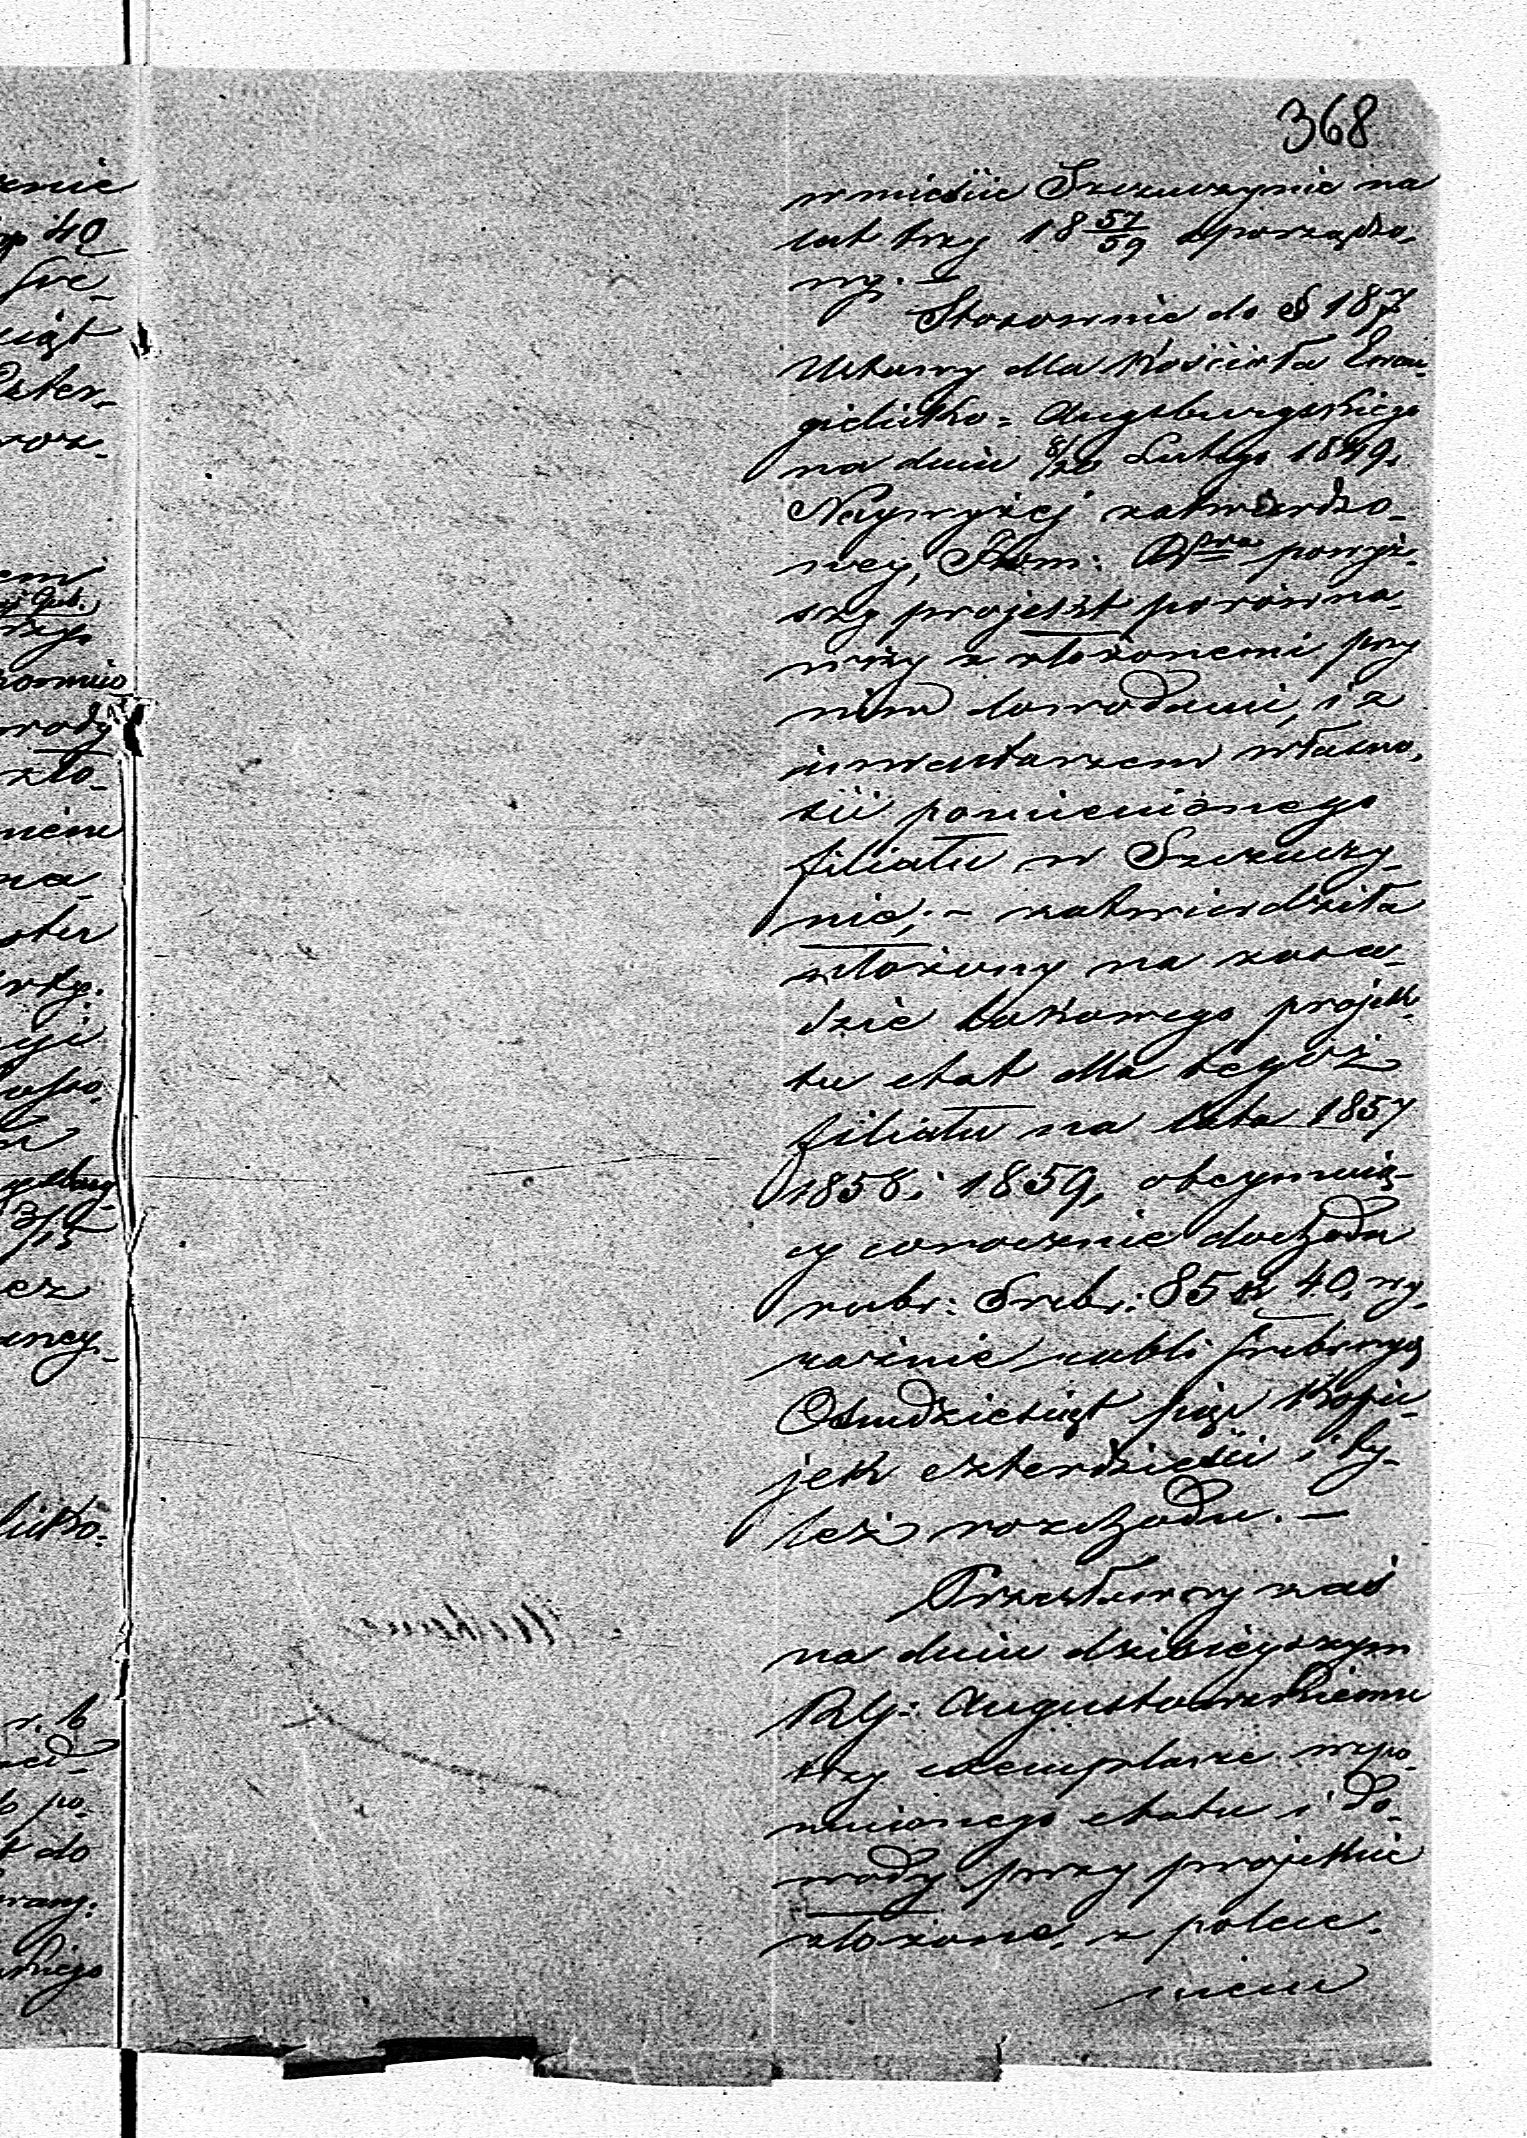 368
w mieście Szczuczynie na
lat trzy 18 57/59 sporządzo-
ny. —
Stosownie do § 187
Ustawy dla Kościoła Ewan-
gielicko-Augsburgskiego
na dniu 8/20 Lutego 1849.
Naywyżej zatwierdzo-
ney, Kom: Rwa powyż-
szy projekt porówna-
wszy z złożonemi przy
nim dowodami, i z
inwentarzem własno-
ści pomienionego
filiału w Szczuczy-
nie; — zatwierdziła
złożony na zasa-
dzie takowego projek-
tu etat dla tegoż
filiału na lata 1857
1858 i 1859, obeymują-
cy corocznie dochodu
rubr: Srebr: 85 k 40, wy-
raźnie rubli srebrnych
Osmdziesiąt pięć Kopie-
jek czterdzieści i ty-
leż rozchodu. —
Przesławszy zaś
na dniu dzisieyszym
Rządowi Augustowskiemu
trzy exemplarze wspo-
mnionego etatu i do-
wody przy projekcie
złożone, z polece-
niem
zenie
40
sre-
siąt
czter-
em
Gub.
rody
zło-
nieniu
3/15
ez
r. b
po-
do